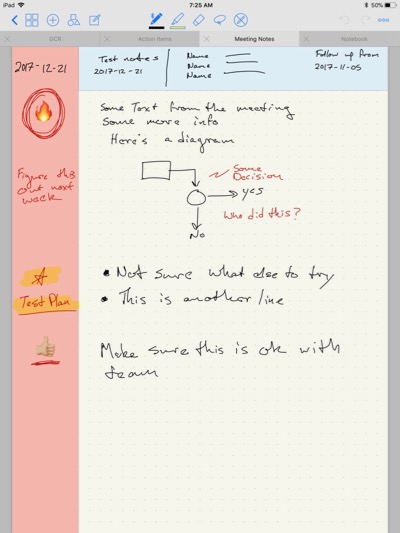 iPad
7:25 AM
50%
GCR
Action Items
Meeting Notes
Notebook
2017-12-21
Test notes
2017-12-21
Name
Name
Name
Follow up from
2017-11-05
Some Text from the meeting
Some more info
Here's a diagram
Some
Decision
yes
Who did this?
No
Figure this
out next
week
Test Plan
• Not sure what else to try
• This is another line
Make sure this is ok with
team